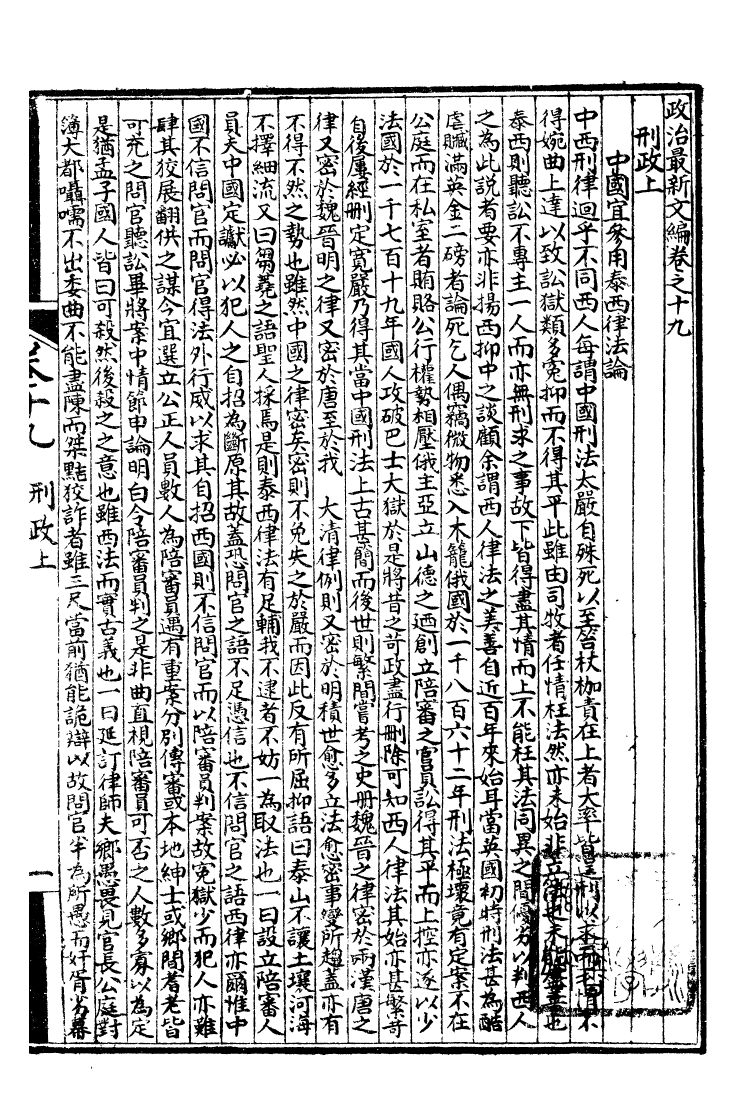 政治最新文編卷之十九
刑政上
中國宜參用泰西律法論
中西刑律迥乎不同西人每謂中國刑法太嚴自殊死以至笞杖枷責在上者大率皆逞刑以求而下情不
得婉曲上達以致訟獄類多冤抑而不得其平此雖由司牧者任情枉法然亦未始非立律也夫能盡善也
泰西則聽訟不專主一人而亦無刑求之事故下皆得盡其情而上不能枉其法同異之間優劣以判西人
之為此說者要亦非揚西抑中之談顧余謂西人律法之美善自近百年來始耳當英國初時刑法甚為酷
虐贓滿英金二磅者論死乞人偶竊微物悉入木籠俄國於一千八百六十二年刑法極壞竟有定案不在
公庭而在私室者賄賂公行權勢相壓俄主亞立山德之迺創立陪審之官員訟得其平而上控亦遂以少
法國於一千七百十九年國人攻破巴士大獄於是將昔之苛政盡行刪除可知西人律法其始亦甚繁苛
自後屢經刪定寬嚴乃得其當中國刑法上古甚簡而後世則繁間嘗考之史册魏晉之律密於兩漢唐之
律又密於魏晉明之律又密於唐至於我 大清律例則又密於明積世愈多立法愈密事變所趨蓋亦有
不得不然之勢也雖然中國之律密矣密則不免失之於嚴而因此反有所屈抑語曰泰山不讓土壤河海
不擇細流又曰芻蕘之語聖人採焉是則泰西律法有足輔我不逮者不妨一為取法也一曰設立陪審人
員夫中國定讞必以犯人之自招為斷原其故蓋恐問官之語不足憑信也不信問官之語西律亦爾惟中
國不信問官而問官得法外行威以求其自招西國則不信問官而以陪審員判案故冤獄少而犯人亦難
肆其狡展翻供之謀今宜選立公正人員數人為陪審員遇有重案分別傳審或本地紳士或鄉間耆老皆
可充之問官聽訟畢將案中情節申論明白令陪審員判之是非曲直視陪審員可否之人數多寡以為定
是猶孟子國人皆曰可殺然後殺之之意也雖西法而實古義也一曰延訂律師夫鄉愚畏見官長公庭對
簿大都囁嚅不出委曲不能盡陳而桀黠狡詐者雖三尺當前猶能詭辯以故問官半為所愚而奸胥劣幕
卷十九
刑政上
一